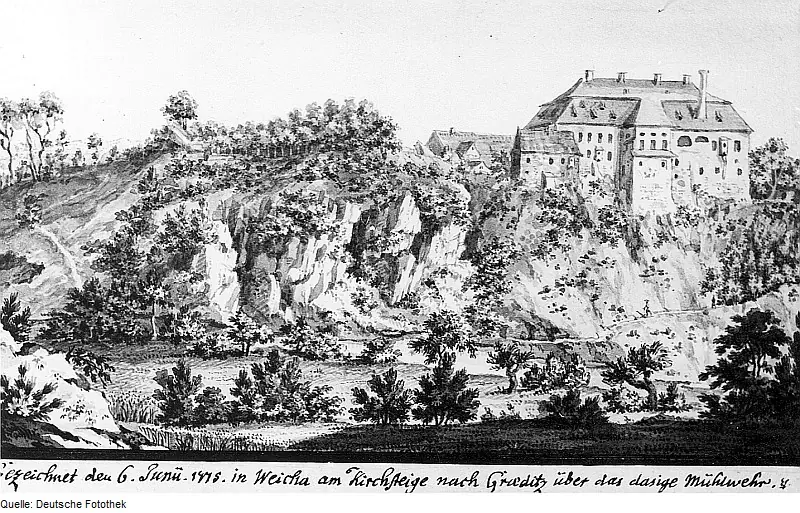 Gezeichnet den 6. Junii. 1775. in Weicha am Kirchsteige nach Græditz über das dasige Mühlwehr.
Quelle: Deutsche Fotothek